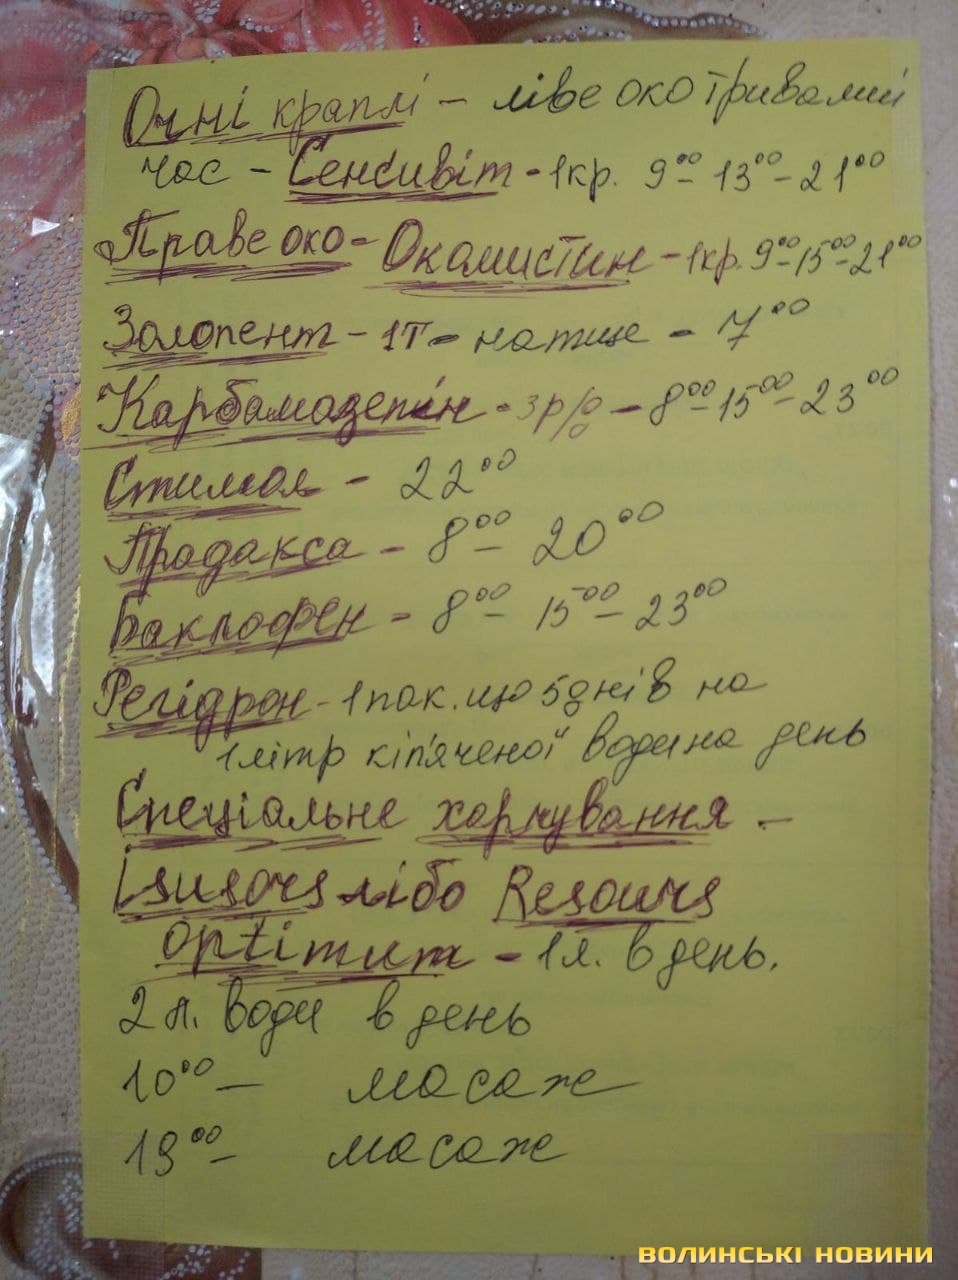 Очні краплі - ліве око тривалий
час - Сенсивіт - 1кр. 9⁰⁰ - 13⁰⁰ - 21⁰⁰
Праве око - Окомистин - 1кр. 9⁰⁰-15⁰⁰-21⁰⁰
Золопент - 1т - натще - 7⁰⁰
Карбамазепін - 3р/д - 8⁰⁰-15⁰⁰-23⁰⁰
Стимол - 22⁰⁰
Прадакса - 8⁰⁰ - 20⁰⁰
Баклофен - 8⁰⁰ - 15⁰⁰ - 23⁰⁰
Регідрон - 1 пак. що 5 днів на
1 літр кіп'яченої води на день
Спеціальне харчування -
либо Resours
optimum - 1л. в день.
2 л. води в день
10⁰⁰ - масаж
19⁰⁰ - масаж
ВОЛИНСЬКІ НОВИНИ